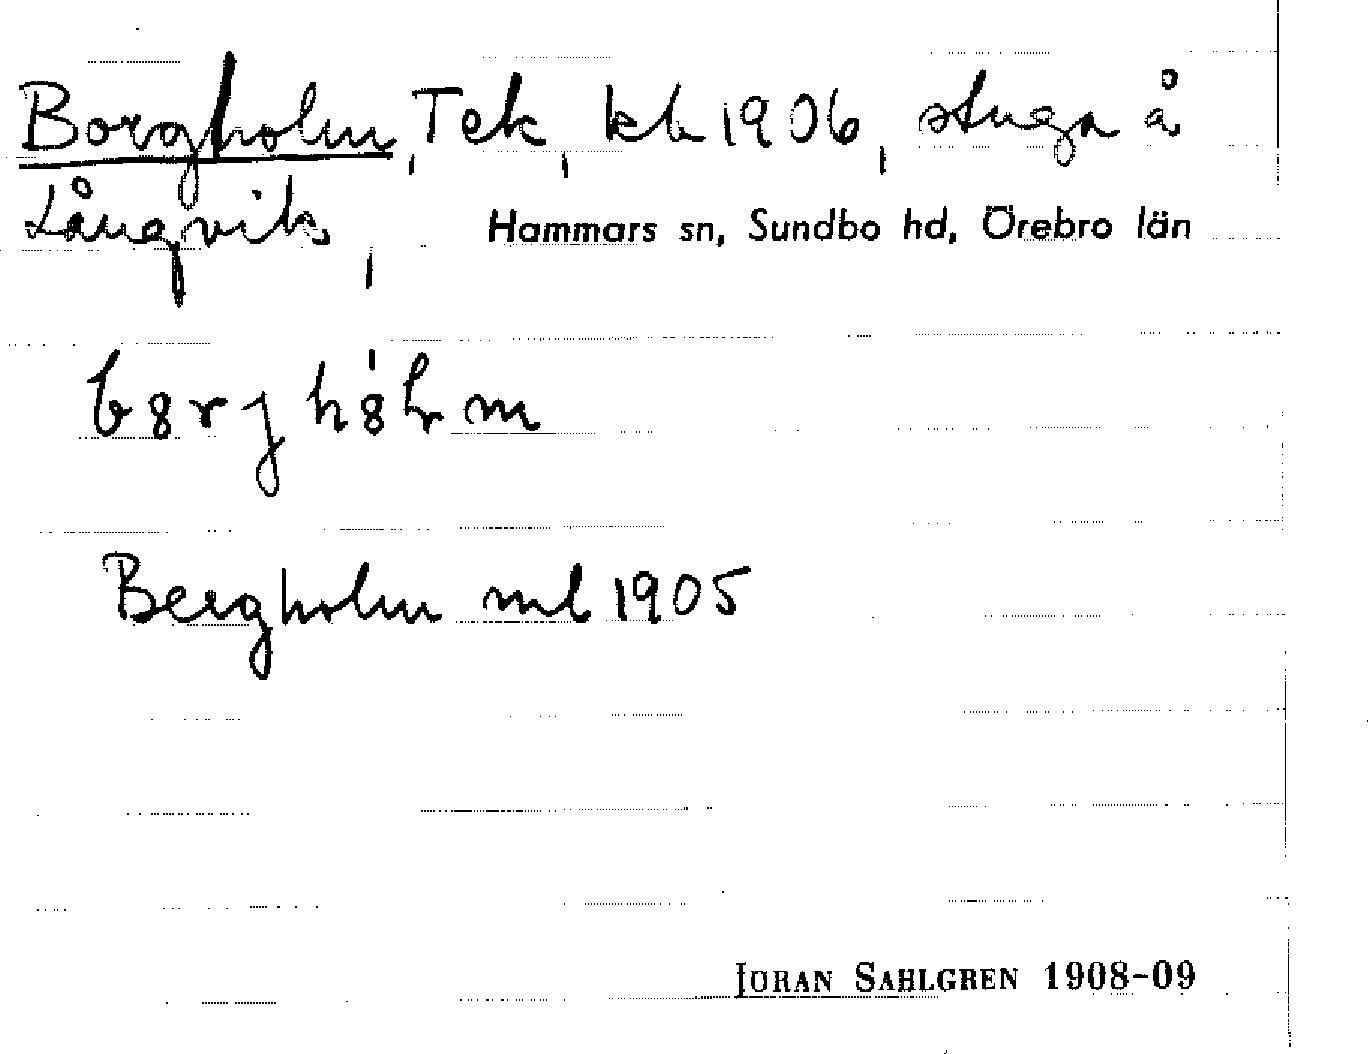 Borgholm, Tek, kb 1906, stuga å
Långvik, Hammars sn, Sundbo hd, Örebro län
Bergholm ml 1905
JÖRAN SAHLGREN 1908-09